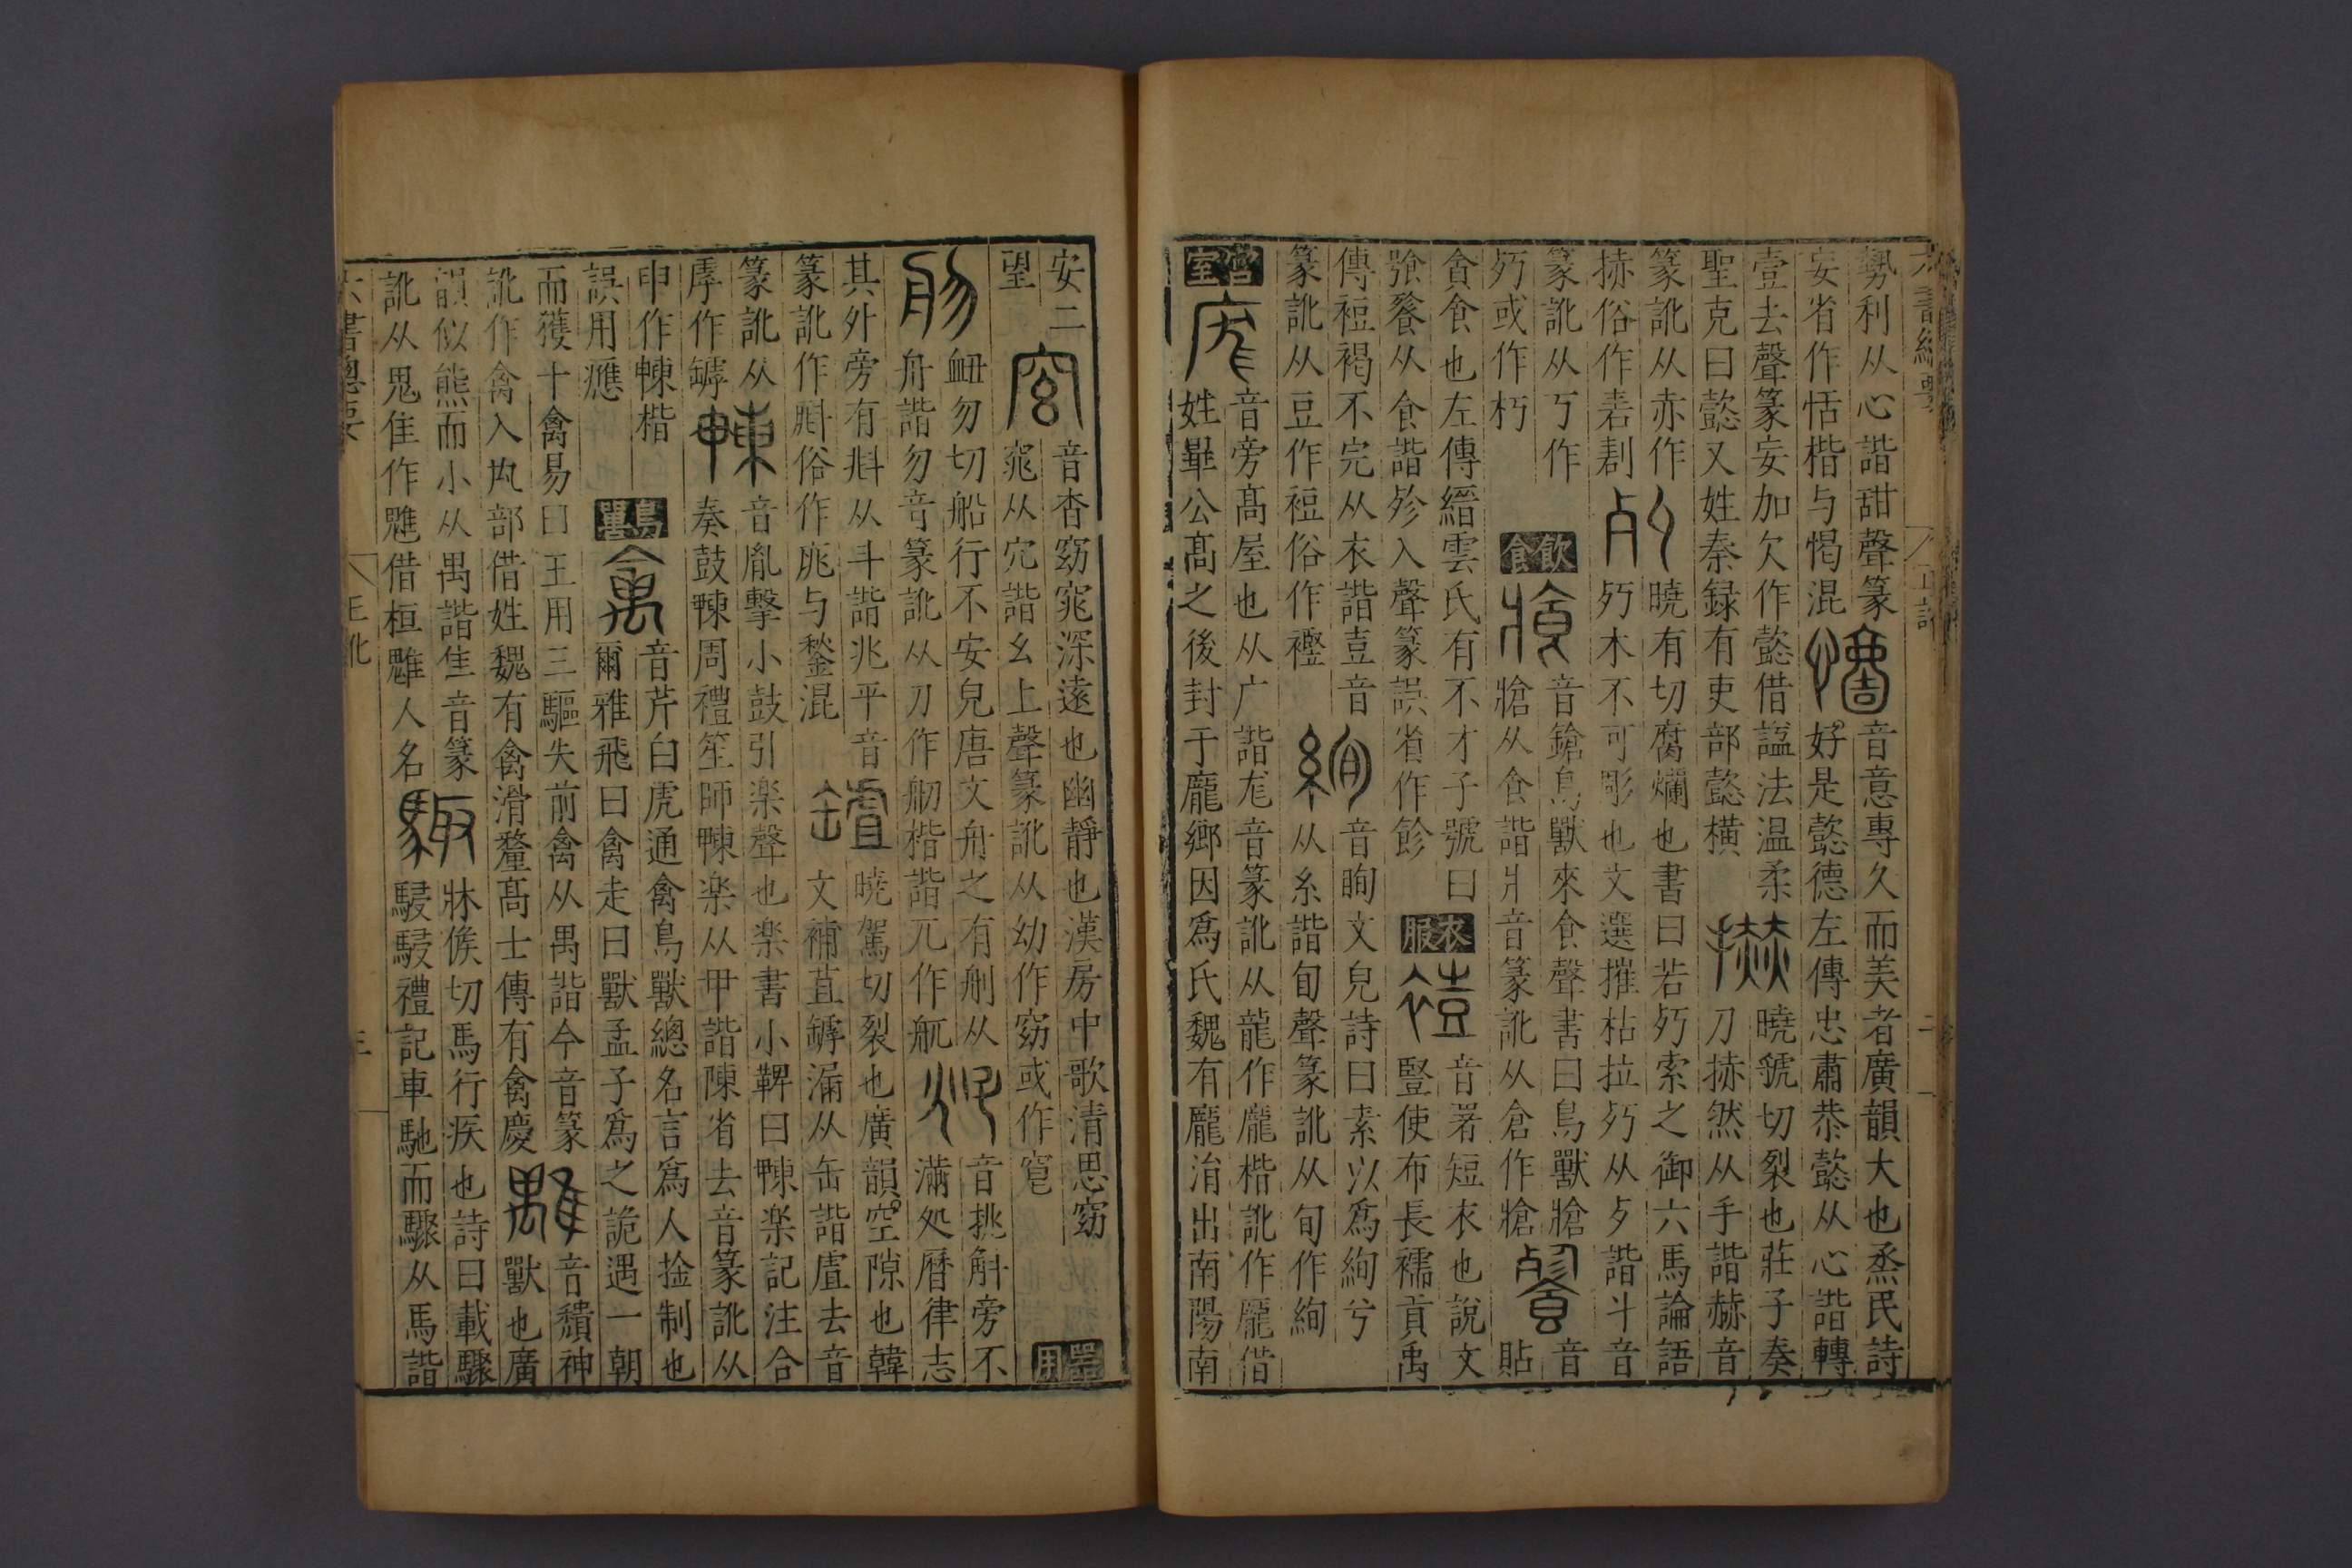 勢利从心諧甜聲篆
妄省作恬楷与愒混
音意專久而美者廣韻大也烝民詩
好是懿德左傳忠肅恭懿从心諧轉
壹去聲篆妄加欠作懿借諡法温柔
聖克曰懿又姓秦録有吏部懿橫
曉虩切裂也莊子奏
刀捇然从手諧赫音
篆訛从赤作
捇俗作砉剨
曉有切腐爛也書曰若朽索之御六馬論語
朽木不可彫也文選摧枯拉朽从歹諧斗音
篆訛从丂作
朽或作朽
飲食
音鎗鳥獸來食聲書曰鳥獸牄
牄从食諧爿音篆訛从倉作牄
音
貼
貪食也左傳縉雲氏有不才子號曰
飱餮从食諧殄入聲篆誤省作餘
衣服
音署短衣也說文
豎使布長襦貢禹
傳裋褐不完从衣諧壴音
篆訛从豆作裋俗作襹
音眴文皃詩曰素以爲絢兮
从糸諧旬聲篆訛从旬作絢
宮室
音旁髙屋也从广諧尨音篆訛从龍作龐楷訛作龎借
姓畢公髙之後封于龐鄉因爲氏魏有龐涓出南陽南
六書總要
正訛
二
安二
望
音杳窈窕深遠也幽靜也漢房中歌清思窈
窕从穴諧幺上聲篆訛从幼作窈或作窅
器用
衄勿切船行不安皃唐文舟之有刖从
舟諧勿音篆訛从刀作舠楷諧兀作舤
音挑斛旁不
滿処曆律志
其外旁有㪷从斗諧兆平音
篆訛作㪷俗作庣与鍫混
曉駕切裂也廣韻空隙也韓
文補苴罅漏从缶諧虖去音
篆訛从
虖作罅
音胤擊小鼓引楽聲也楽書小鞞曰朄楽記注合
奏鼓朄周禮笙師朄楽从甲諧陳省去音篆訛从
申作朄楷
誤用應
鳥獸
音芹白虎通禽鳥獸總名言爲人捡制也
爾雅飛曰禽走曰獸孟子爲之詭遇一朝
而獲十禽易曰王用三驅失前禽从禺諧今音篆
訛作禽入禸部借姓魏有禽滑釐髙士傳有禽慶
音穨神
獸也廣
韻似熊而小从禺諧隹音篆
訛从鬼隹作魋借桓魋人名
牀俟切馬行疾也詩曰載驟
駸駸禮記車馳而驟从馬諧
六書總要
正訛
三